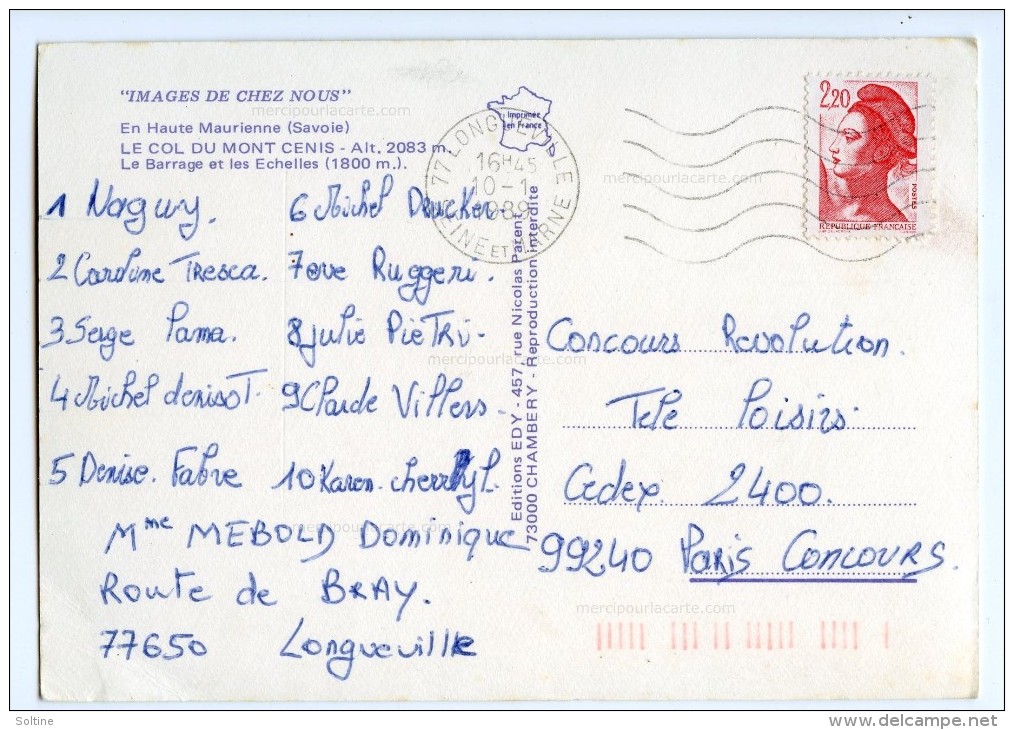 "IMAGES DE CHEZ NOUS"
En Haute Maurienne (Savoie)
LE COL DU MONT CENIS - Alt. 2083 m.
Le Barrage et les Echelles (1800 m.).
Imprimée en France
77 LONGUEVILLE
16H45
10-1
1989
SEINE ET MARNE
2,20
POSTES
REPUBLIQUE FRANCAISE
1 Naguy.
2 Caroline Tresca.
3 Serge Lama.
4 Michel denisot.
5 Denise. Fabre
6 Michel Drucker.
7 eve Ruggeri.
8 Julie Pietri-
9 Claude Villers.
10 Karen. cherryl.
Mme MEBOLD Dominique
Route de BRAY.
77650 Longueville
Editions EDY - 457, rue Nicolas Parent
73000 CHAMBERY - Reproduction interdite
Concours Revolution.
Tele Loisirs.
Cedex 2400.
99240 PARIS CONCOURS.
mercipourlacarte.com
mercipourlacarte.com
mercipourlacarte.com
mercipourlacarte.com
mercipourlacarte.com
Soltine
delcampe.net